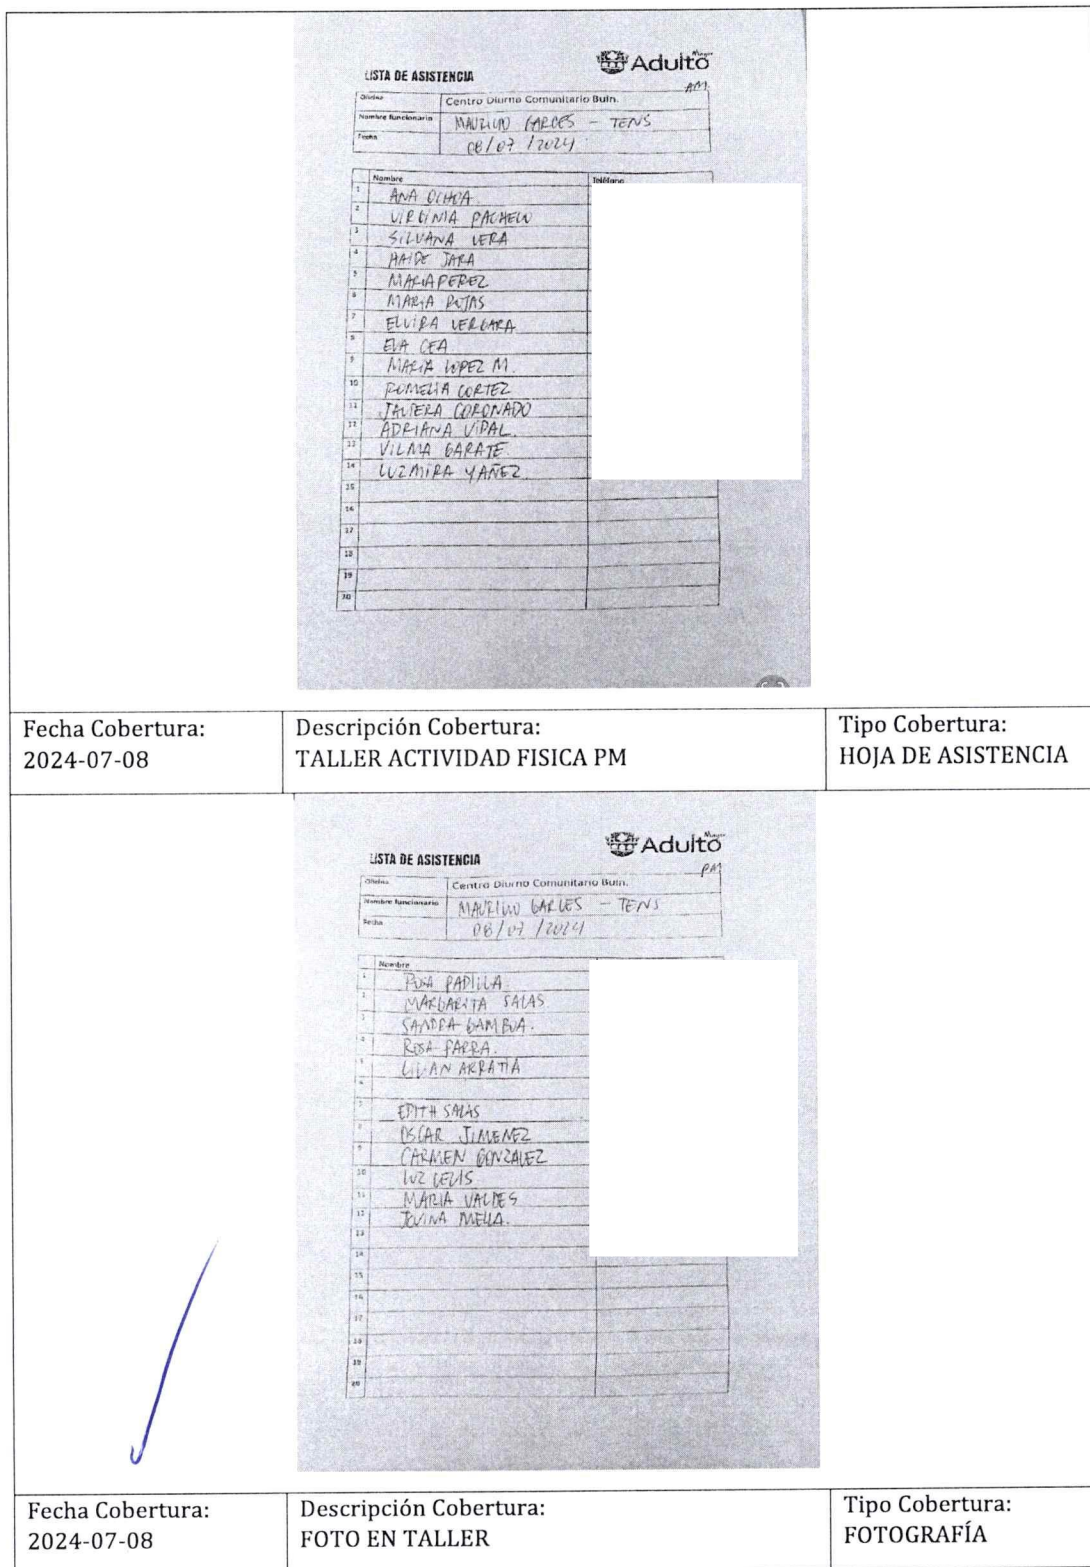 Mayor
Adulto
LISTA DE ASISTENCIA
AM
Oficina Centro Diurno Comunitario Buin.
Nombre funcionario MAURICIO GARCES - TENS
Fecha 08/07/2024
Nombre Teléfono
1 ANA OCHOA
2 VIRGINIA PACHECO
3 SILVANA VERA
4 HAIDE JARA
5 MARIA PEREZ
6 MARIA ROJAS
7 ELVIRA VERGARA
8 EVA CEA
9 MARIA LOPEZ M.
10 ROMELIA CORTEZ
11 JAVIERA CORONADO
12 ADRIANA VIDAL.
13 VILMA GARATE
14 LUZMIRA YAÑEZ
15
16
17
18
19
20
Fecha Cobertura: Descripción Cobertura: Tipo Cobertura:
2024-07-08 TALLER ACTIVIDAD FISICA PM HOJA DE ASISTENCIA
Mayor
Adulto
LISTA DE ASISTENCIA
PM
Oficina Centro Diurno Comunitario Buin.
Nombre funcionario MAURICIO GARCES - TENS
Fecha 08/07/2024
Nombre
1 ROSA PADILLA
2 MARGARITA SALAS
3 SANDRA GAMBOA.
4 ROSA PARRA.
5 LILIAN ARRATIA
6
7 EDITH SALAS
8 OSCAR JIMENEZ
9 CARMEN GONZALEZ
10 LUZ
11 MARIA VALDES
12 JOVINA MELLA.
13
14
15
16
17
18
19
20
Fecha Cobertura: Descripción Cobertura: Tipo Cobertura:
2024-07-08 FOTO EN TALLER FOTOGRAFÍA